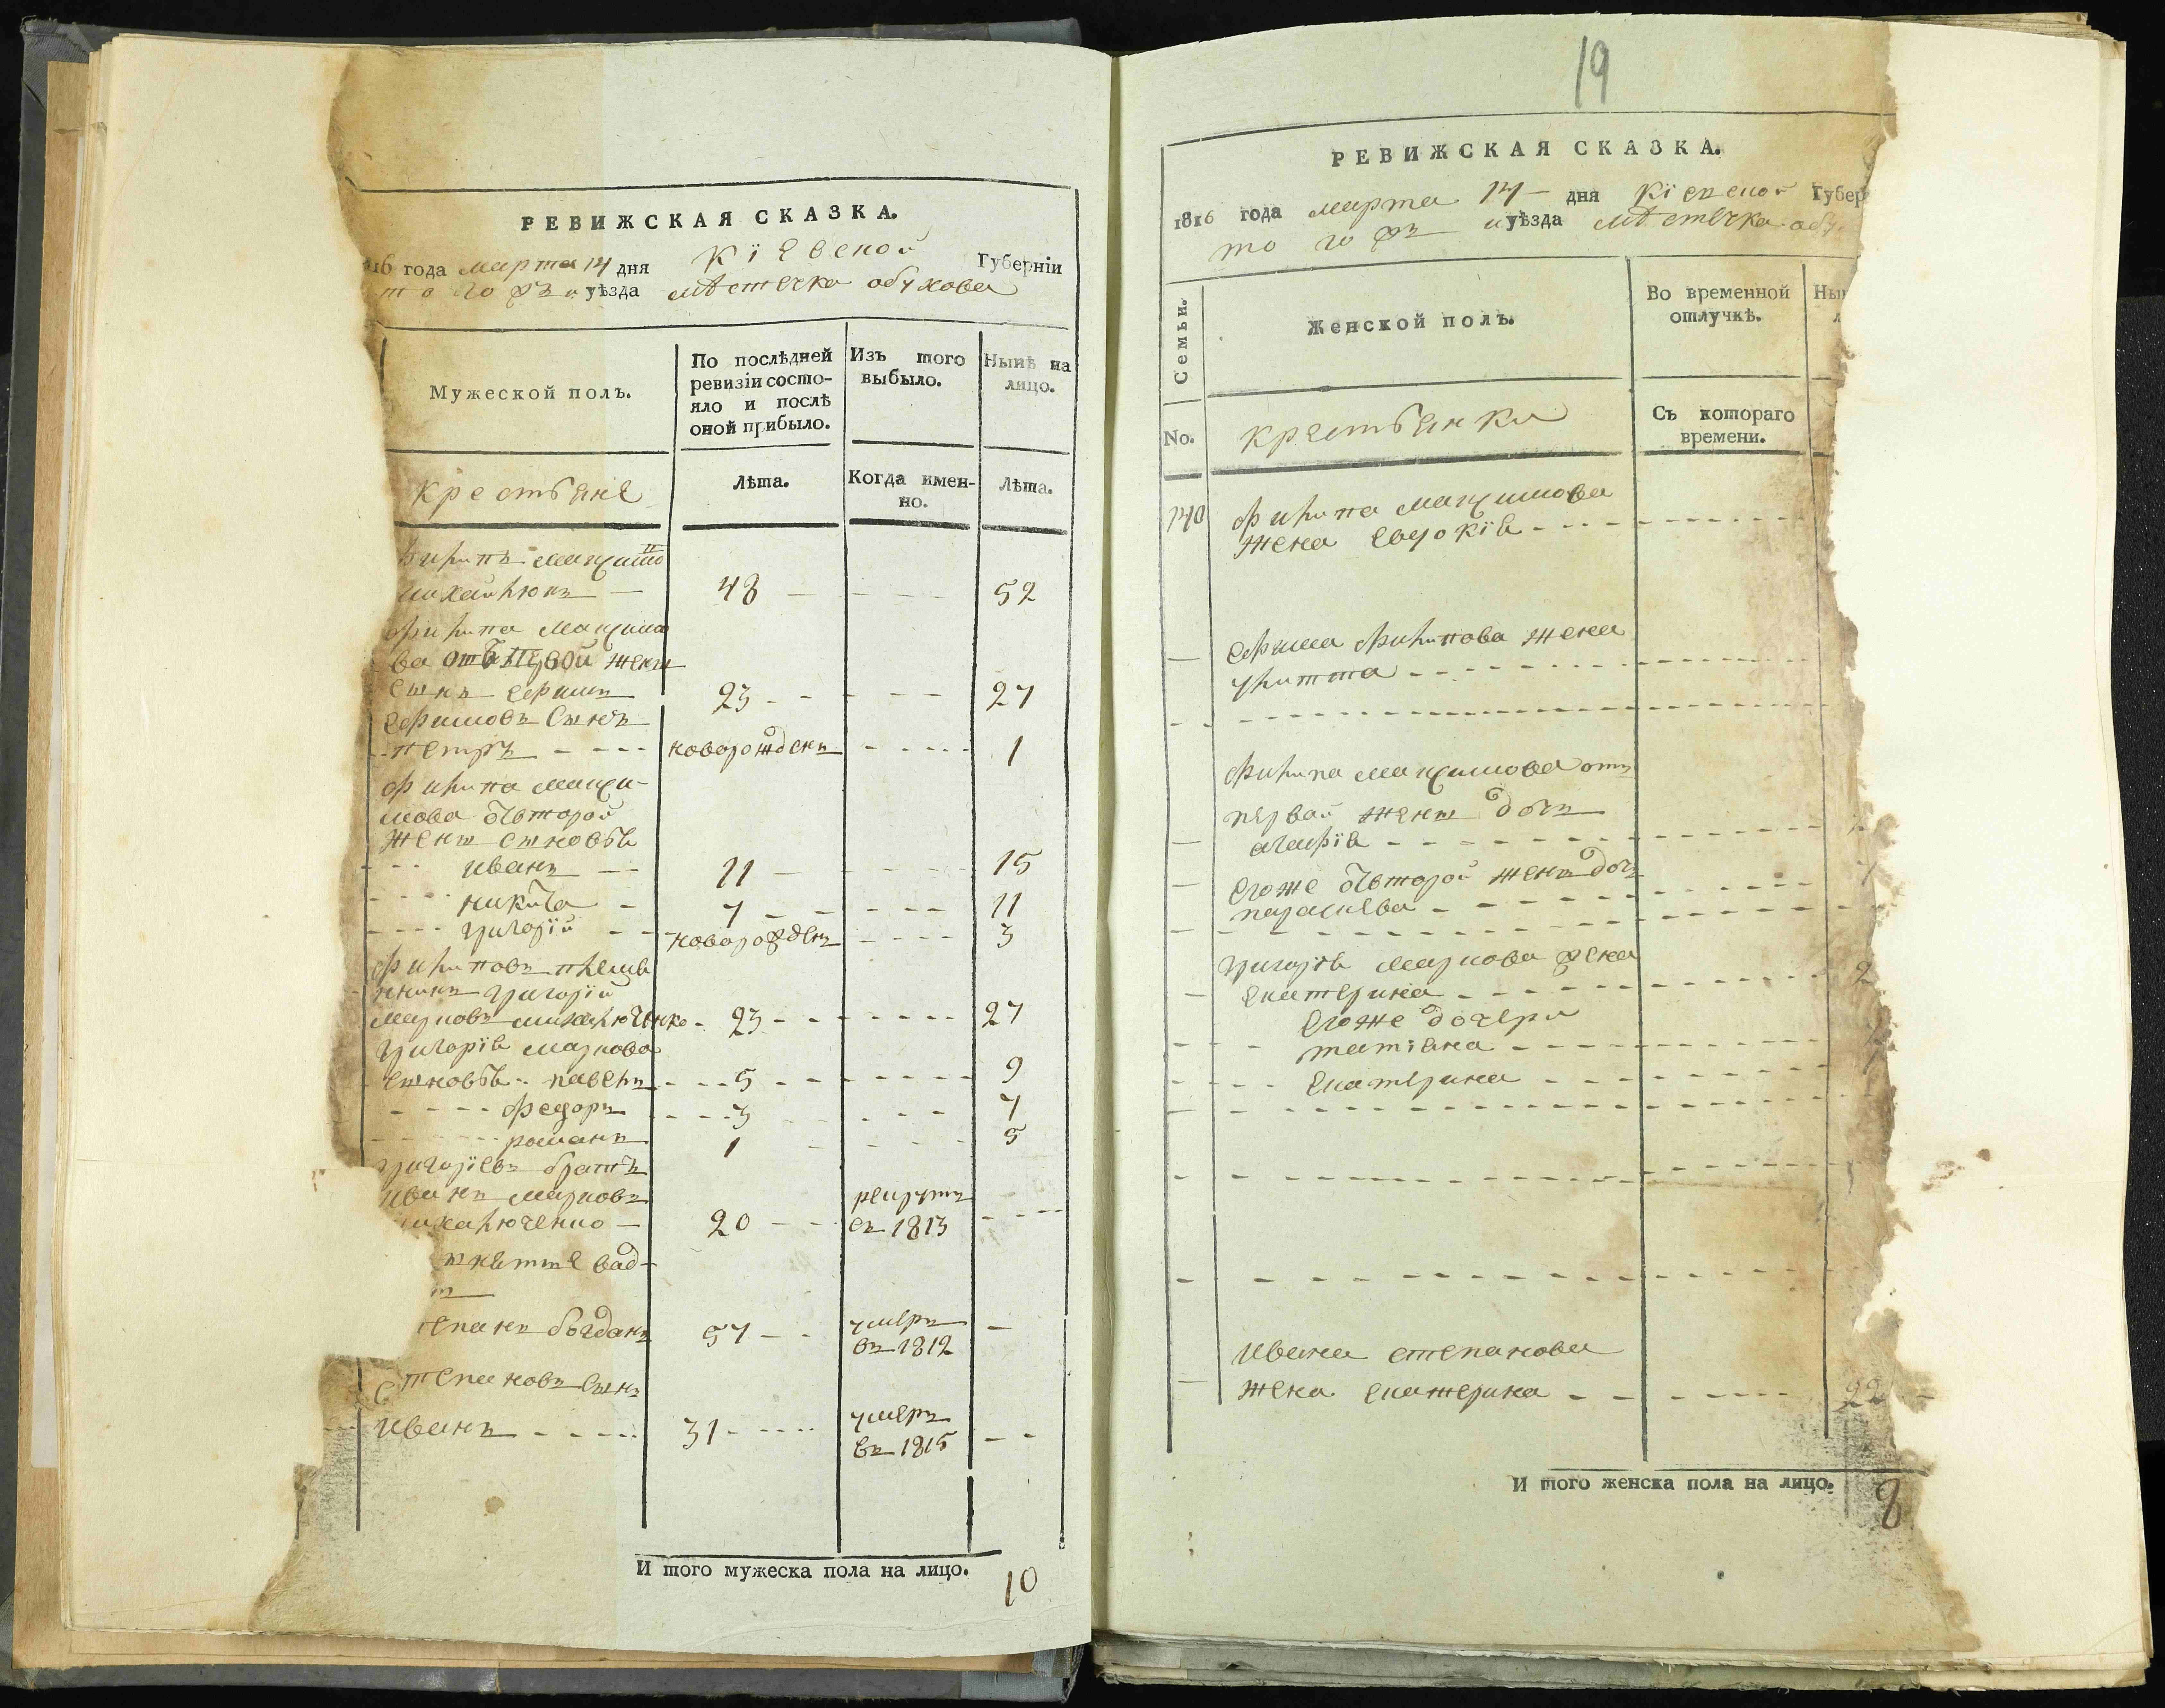 РЕВИЖСКАЯ СКАЗКА.
16 года марта 14 дня Кіевской Губерніи
того жъ уѣзда мѣстечка обухова
Мужеской полъ.
По послѣдней ревизіи состояло и послѣ оной прибыло.
Изъ того выбыло.
Нынѣ на лицо.
крестьяне
Лѣта.
Когда именно.
Лѣта.
Филипъ Максимо
48 52
филипа Максимо
ва отъ первой жены
сынъ ефимъ 23 27
ефимовъ сынъ
петръ новорожденъ 1
филипа макси-
мова отъ второй
жены сыновья
иванъ 11 15
никита 7 11
григорій новорожденъ 3
филиповъ племя
нникъ григорій
марковъ михалюченко 23 27
григорія маркова
сыновья павелъ 5 9
федоръ 3 7
романъ 1 5
григоріевъ братъ
иванъ марковъ рекрутъ
ихалюченко 20 въ 1813
епанъ богданъ 57 умеръ
въ 1812
степановъ сынъ
иванъ 31 умеръ
въ 1815
И того мужеска пола на лицо. 10
19
РЕВИЖСКАЯ СКАЗКА.
1816 года марта 14 дня Кіевской Губер
того жъ уѣзда мѣстечка обу
Семьи.
Женской полъ.
Во временной отлучкѣ.
Ны
No.
крестьянки
Съ котораго времени.
140 филипа максимова
жена евдокія
ефима филипова жена
улитта
филипа максимова отъ
первой жены дочь
агафія
егоже отъ второй жены дочь
параскева
григорія маркова жена
екатерина 2
егоже дочери
татіяна
екатерина
ивана степанова
жена екатерина 22
И того женска пола на лицо. 8